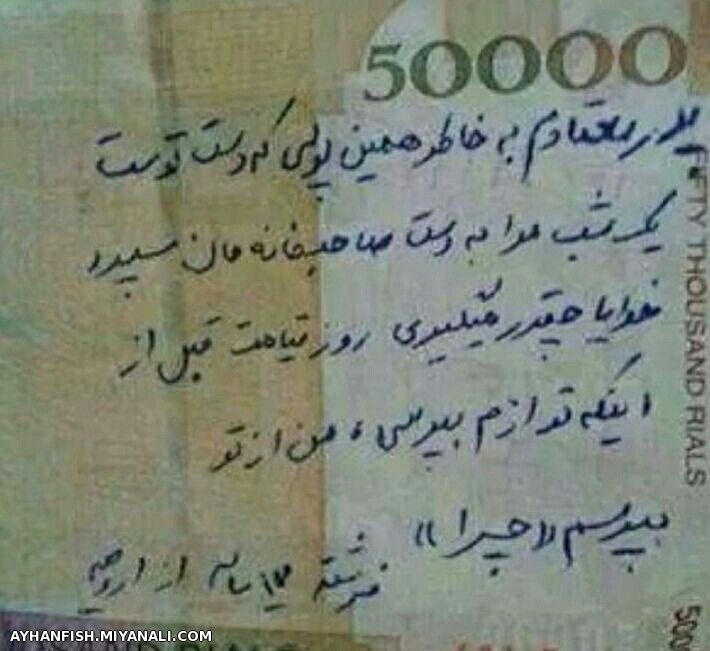 50000
پدر معتادم به خاطر همین پولی که دست توست
یک شب مرا به دست صاحبخانه مان سپرد
خدایا چقدر میگیری روز قیامت قبل از
اینکه تو ازم بپرسی، من از تو
بپرسم «چرا»
فرشته ۱۲ ساله از ارومیه
FIFTY THOUSAND RIALS
AYHANFISH.MIYANALI.COM